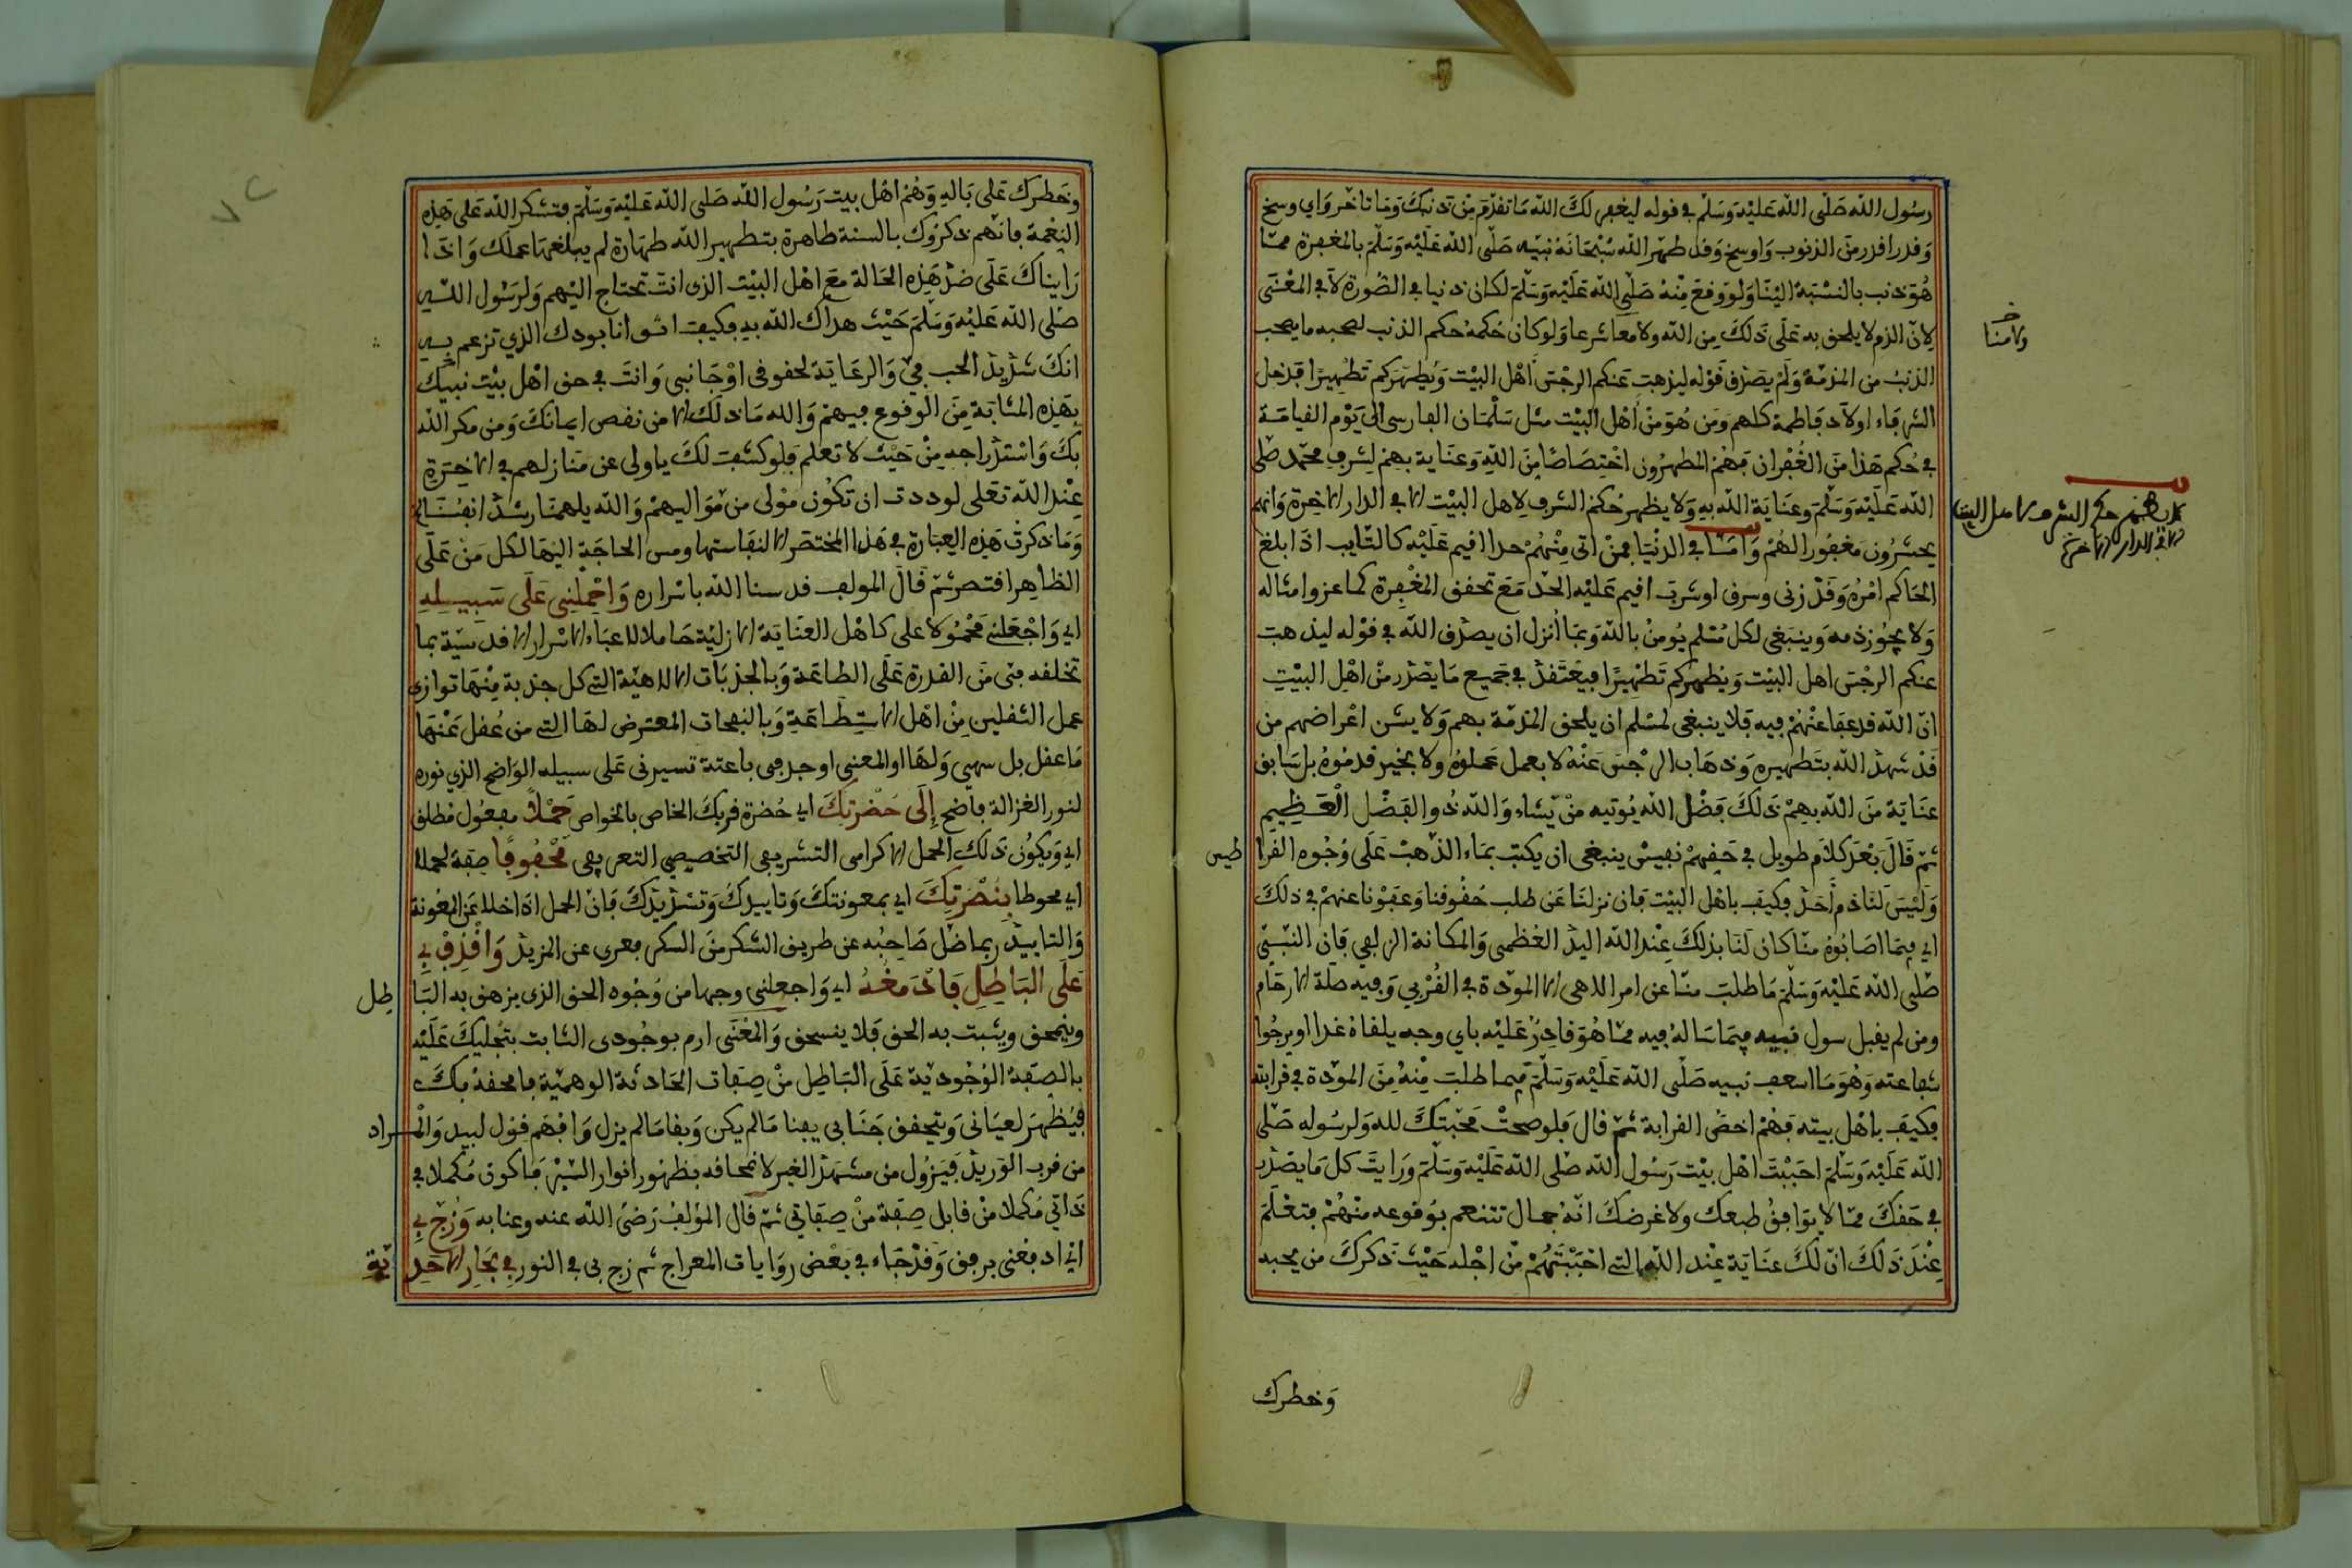 رسول الله صلى الله عليه وسلم في قوله ليغفر لك الله ما تقدم من ذنبك وما تاخر واي وسخ
وقدر اقدر من الذنوب واوسخ وقد طهر الله سبحانه نبيه صلى الله عليه وسلم بالمغفرة مما
هو ذنب بالنسبة الينا ولو وقع منه صلى الله عليه وسلم لكان ذنبا في الصورة لا في المعنى
لان الذم لا يلحق به على ذلك من الله ولا منا شرعا ولو كان حكمه حكم الذنب لصحبه ما يصحب
الذنب من المذمة ولم يصدق قوله ليذهب عنكم الرجس اهل البيت ويطهركم تطهيرا فدخل
الشرفاء اولاد فاطمة كلهم ومن هو من اهل البيت مثل سلمان الفارسي الى يوم القيامة
في حكم هذا من الغفران فهم المطهرون اختصاصا من الله وعناية بهم لشرف محمد صلى
الله عليه وسلم وعناية الله به ولا يظهر حكم الشرف لاهل البيت الا في الدار الاخرة وانهم
يحشرون مغفورا لهم واما في الدنيا فمن اتى منهم حدا اقيم عليه كالتايب اذا بلغ
الحاكم امره وقد زنى وسرق او شرب اقيم عليه الحد مع تحقق المغفرة كماعز وامثاله
ولا يجوز ذمه وينبغي لكل مسلم يومن بالله وبما انزل ان يصدق الله في قوله ليذهب
عنكم الرجس اهل البيت ويطهركم تطهيرا فيعتقد في جميع ما يصدر من اهل البيت
ان الله قد عفا عنهم فيه فلا ينبغي لمسلم ان يلحق المذمة بهم ولا يشن اعراضهم من
قد شهد الله بتطهيره وذهاب الرجس عنه لا بعمل عملوه ولا بخير قدموه بل سابق
عناية من الله بهم ذلك فضل الله يوتيه من يشاء والله ذو الفضل العظيم
ثم قال بعد كلام طويل في حقهم نفيس ينبغي ان يكتب بماء الذهب على وجوه القرا طيس
وليس لنا ذم احد فكيف باهل البيت فان نزلنا عن طلب حقوقنا وعفونا عنهم في ذلك
اي فيما اصابوه منا كان لنا بذلك عند الله اليد العظمى والمكانة الزلفى فان النبي
صلى الله عليه وسلم ما طلب منا عن امر الاهي الا المودة في القربي وفيه صلة الارحام
ومن لم يقبل سول نبيه فيما ساله فيه مما هو قادر عليه باي وجه يلقاه غدا او يرجوا
شفاعته وهو ما اسعف نبيه صلى الله عليه وسلم فيما طلب منه من المودة في قرابته
فكيف باهل بيته فهم اخص القرابة ثم قال فلو صحت محبتك لله ولرسوله صلى
الله عليه وسلم احببت اهل بيت رسول الله صلى الله عليه وسلم ورايت كل ما يصدر
في حقك مما لا يوافق طبعك ولا غرضك انه جمال تتنعم بوقوعه منهم فتعلم
عند ذلك ان لك عناية عند الله التي احببتهم من اجله حيث ذكرك من يحبه
وخطرك
ولا منا
ولا يظهر حكم الشرف لاهل البيت
الا في الدار الاخرة
وخطرك على باله وهم اهل بيت رسول الله صلى الله عليه وسلم فتشكر الله على هذه
النعمة فانهم ذكروك بالسنة طاهرة بتطهير الله طهارة لم يبلغها عملك واذا
رايناك على ضد هذه الحالة مع اهل البيت الذي انت تحتاج اليهم ولرسول الله
صلى الله عليه وسلم حيث هداك الله به فكيف اثق انا بودك الذي تزعم به
انك شديد الحب في والرعاية لحقوقي او جانبي وانت في حق اهل بيت نبيك
بهذه المثابة من الوقوع فيهم والله ما ذلك الا من نقص ايمانك ومن مكر الله
بك واستدراجه من حيث لا تعلم فلو كشف لك يا ولي عن منازلهم في الاخرة
عند الله تعلى لوددت ان تكون مولى من مواليهم والله يلهمنا رشد انفسنا اه
وما ذكرت هذه العبارة في هذا المختصر الا لنفاستها ومس الحاجة اليها لكل من على
الظاهر اقتصر ثم قال المولف قدسنا الله باسراره واحملني على سبيله
اي واجعلني محمولا على كاهل العناية الازلية حاملا لاعباء الاسرار الاقدسية بما
تخلقه في من القدرة على الطاعة وبالجذبات الالاهية التي كل جذبة منها توازي
عمل الثقلين من اهل الاستطاعة وبالنفحات المعترض لها التي من غفل عنها
ما عقل بل سهي ولها او المعني اوجد في باعثة تسيرني على سبيله الواضح الذي نوره
لنور الغزالة فاضح إلى حضرتك اي حضرة قربك الخاص بالخواص حملا مفعول مطلق
اي ويكون ذلك الحمل الاكرامي التشريفي التخصيصي التعريفي محفوفا صفة لحملا
اي محوطا بنصرتك اي بمعونتك وتاييدك وتسديدك فان الحمل اذا خلا عن المعونة
والتاييد ربما ضل صاحبه عن طريق الشكر من السكر فعري عن المزيد واقذف بي
على الباطل فادمغه اي واجعلني وجها من وجوه الحق الذي يزهق به البا طل
وينمحق ويثبت به الحق فلا ينسحق والمعنى ارم بوجودي الثابت بتجليك عليه
بالصفة الوجودية على الباطل من صفات الحادثة الوهمية فامحقه بك
فيظهر لعياني ويتحقق جناني بفنا ما لم يكن وبقا ما لم يزل وافهم قول لبيد والمراد
من قرب الوريد فيزول من مشهد الغير لانمحاقه بظهور انوار السير فاكون مكملا في
ذاتي مكملا من قابل صفة من صفاتي ثم قال المؤلف رضي الله عنه وعنا به وزج بي
اي ادفعني برفق وقد جاء في بعض روايات المعراج ثم زج بي في النور في بحار الاحد ية